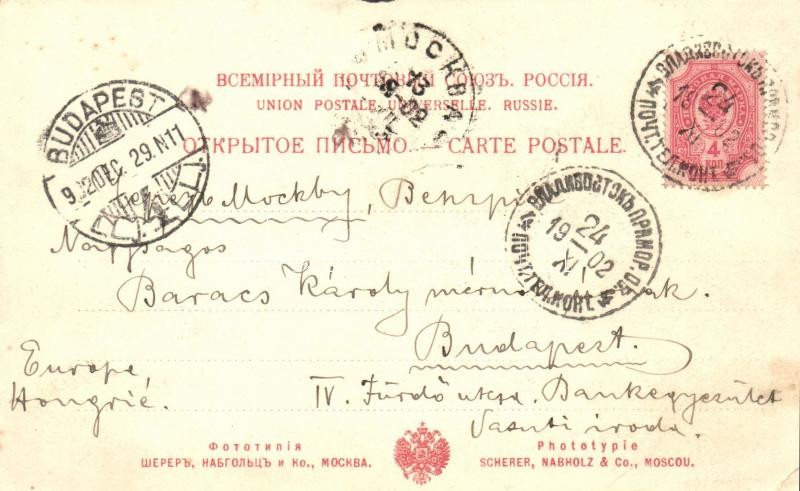 МОСКВА
ВСЕМІРНЫЙ ПОЧТОВЫЙ СОЮЗЪ. РОССІЯ.
UNION POSTALE UNIVERSELLE. RUSSIE.
ОТКРЫТОЕ ПИСЬМО. — CARTE POSTALE.
BUDAPEST
902 DEC. 29. N11
ВЛАДИВОСТОКЪ
24
4
КОП
ВЛАДИВОСТОКЪ ПРИМОР. ОБ.
ПОЧТ. ТЕЛ. КОНТ.
24
19 02
XI
Черезъ Москву,
Nagyságos
Baracs Károly
Budapest.
Europe
Hongrie.
IV. Fürdő utcza. Bankegyesület
Vasuti iroda.
Фототипія
ШЕРЕРЪ, НАБГОЛЬЦЪ и Ко., МОСКВА.
Phototypie
SCHERER, NABHOLZ & Co., MOSCOU.